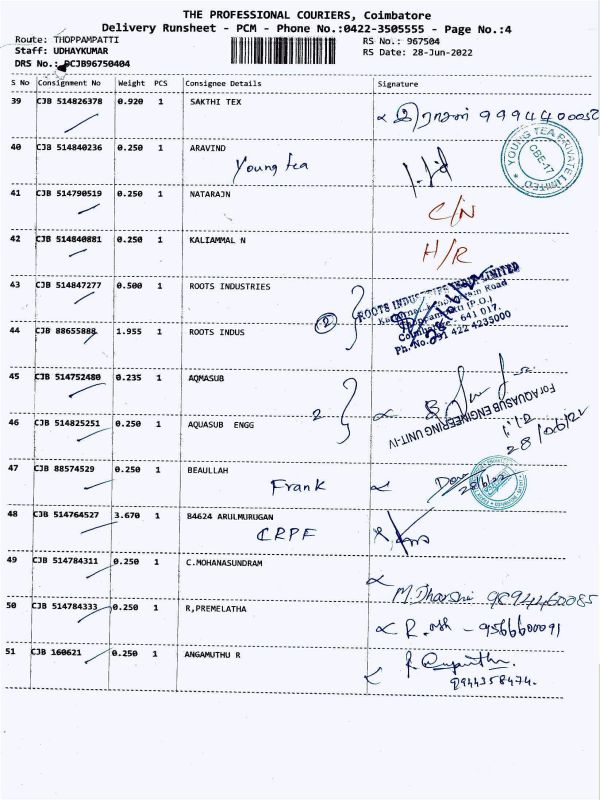 THE PROFESSIONAL COURIERS, Coimbatore
Delivery Runsheet - PCM - Phone No.:0422-3505555 - Page No.:4
Route: THOPPAMPATTI RS No.: 967504
Staff: UDHAYKUMAR RS Date: 28-Jun-2022
DRS No.: PCJB96750404
S No Consignment No Weight PCS Consignee Details Signature
39 CJB 514826378 0.920 1 SAKTHI TEX
40 CJB 514840236 0.250 1 ARAVIND
Young tea
YOUNG TEA PRIVATE LIMITED
CBE-17
41 CJB 514790519 0.250 1 NATARAJN C/N
42 CJB 514840881 0.250 1 KALIAMMAL N H/R
43 CJB 514847277 0.500 1 ROOTS INDUSTRIES
2
44 CJB 88655888 1.955 1 ROOTS INDUS
ROOTS INDUSTRIES INDIA LIMITED
641 017.
Ph. No. 91 422 4235000
45 CJB 514752480 0.235 1 AQMASUB
2
For AQUASUB ENGINEERING UNIT-IV
46 CJB 514825251 0.250 1 AQUASUB ENGG
28/06/22
47 CJB 88574529 0.250 1 BEAULLAH
Frank
28/6/22
48 CJB 514764527 3.670 1 B4624 ARULMURUGAN
CRPF
49 CJB 514784311 0.250 1 C.MOHANASUNDRAM
M.Dharshi 9894460085
50 CJB 514784333 0.250 1 R,PREMELATHA
9566600091
51 CJB 160621 0.250 1 ANGAMUTHU R
9944358474.